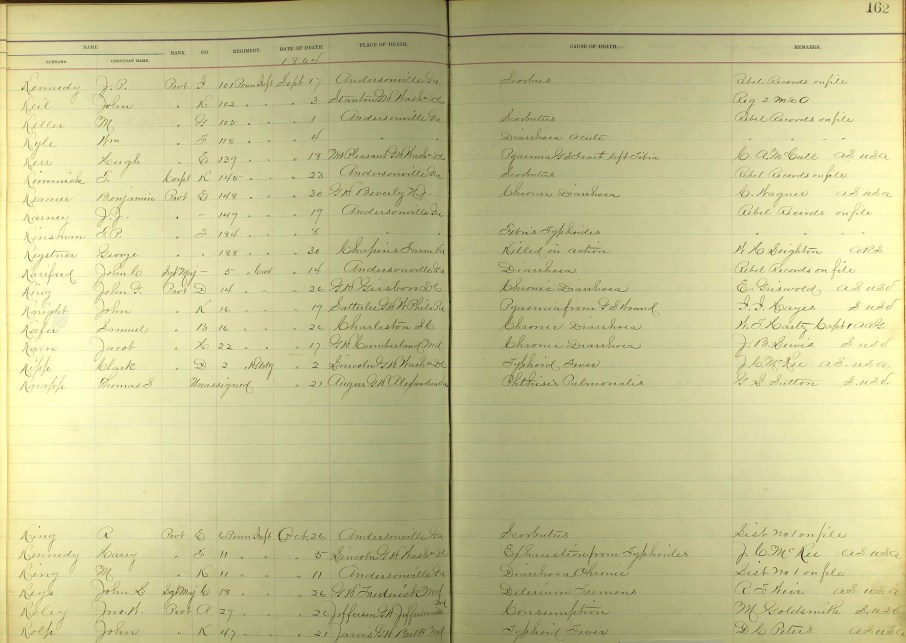 162
NAME. RANK. CO. REGIMENT. DATE OF DEATH. PLACE OF DEATH. CAUSE OF DEATH. REMARKS.
SURNAME. CHRISTIAN NAME. 1864
Kennedy J. P. Pvt I 101 Penn Inft Sept 17 Andersonville Ga Scorbutus Rebel Records on file
Keil John " K 102 " " " 3 Stanton GH Wash'n DC Reg 2 M & O
Keller M " G 103 " " " 1 Andersonville Ga Scorbutus Rebel Records on file
Kyle Wm " F 118 " " " 4 " " Diarrhoea Acute " " "
Kerr Hugh " E 139 " " " 18 Mt Pleasant GH Wash'n DC Pyaemia left Tibia C. A. McCall A S U S A
Kimmick " Corpl K 145 " " " 23 Andersonville Ga Scorbutus Rebel Records on file
Kramer Benjamin Pvt E 148 " " " 30 GH Beverly N.J. Chronic Diarrhoea C. Wagner A S U S A
Karney J. J. " – 149 " " " 19 Andersonville Ga Rebel Records on file
Kinsman " F 184 " " " 8 " " Febris Typhoides " " "
George " " 188 " " " 30 Chapin's Farm Va Killed in action
John C Sgt Maj – 5 " Cav " 14 Andersonville Ga Diarrhoea Rebel Records on file
King John F. Pvt D 14 " " " 26 GH Giesboro DC Chronic Diarrhoea E. Griswold A S U S V
Knight John " K 16 " " " 19 Satterlee GH W Phila Pa Pyaemia from G S Wound I. I. Hayes S U S V
Samuel " B 16 " " " 26 Charleston SC Chronic Diarrhoea
Jacob " 22 " " " 17 GH Cumberland Md Chronic Diarrhoea J. B. Lewis S U S V
Kipp Clark " D 2 " H Arty " 2 Lincoln GH Wash'n DC Typhoid Fever J. C. McKee A S U S A
Knapp Thomas S Unassigned " 21 Augur GH Alexandria Va Phthisis Pulmonalis G. L. Sutton S U S V
King R Pvt E 6 Penn Inft Oct 26 Andersonville Ga Scorbutus List No 1 on file
Kennedy Harry " F 11 " " " 5 Lincoln GH Wash'n DC Exhaustion from Typhoides J. C. McKee A S U S A
King M " K 11 " " " 11 Andersonville Ga Diarrhoea Chronic List No 1 on file
Keys John S Sgt Maj C 18 " " " 26 GH Frederick Md Delerium Tremens R. F. Weir A S U S A
Koley Pvt A 27 " " " 26 Jefferson GH Jeffersonville Ind Consumption M. Goldsmith S U S V
Kolp John " K 47 " " " 21 Jarvis GH Balto Md Typhoid Fever D. C. Peters A S U S A